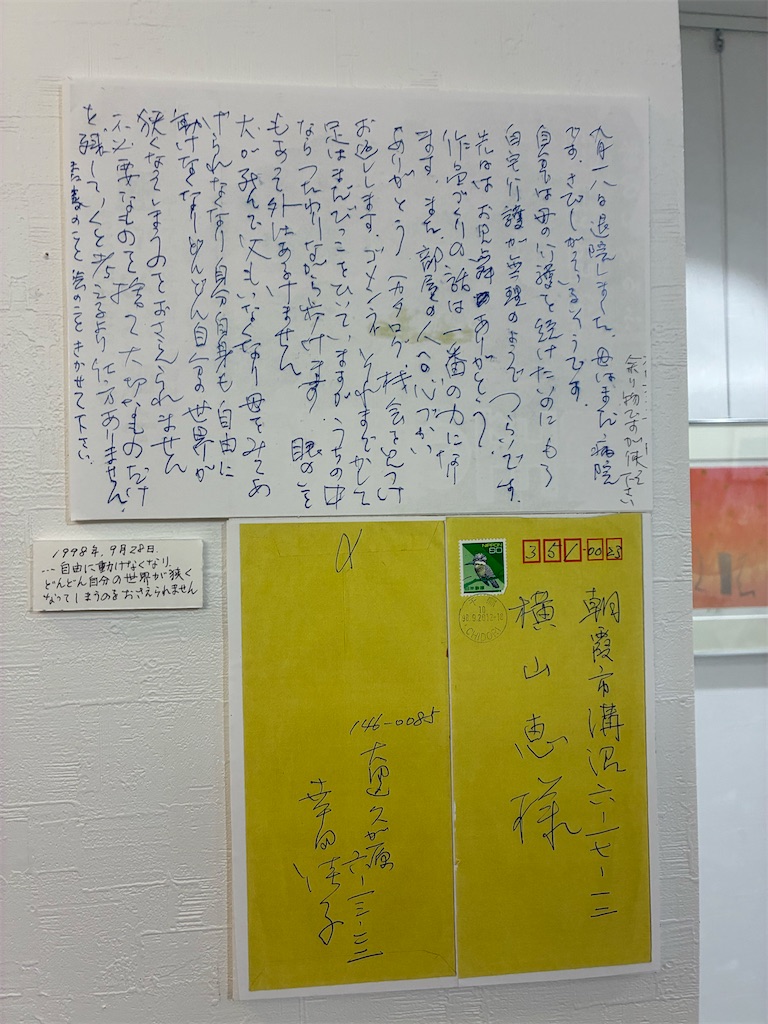 九月一八日退院しました。母はまだ病院
です。さびしがっているそうです。
自分は母の介護を続けたいのにもう
自宅介護が無理のようで つらいです。
先日は お見舞ありがとう。
作品づくりの話は一番の力になり
ます。また、部屋の人への心づかい
ありがとう
お返しします。ゴメンネ それまでかして
足はまだびっこをひいていますが、うちの中
ならつたわりながら歩けます 眼のこと
もあって外はあるけません
犬が死んで父もいなくなり母をみてあ
げられなくなり自分自身も自由に
動けなくなりどんどん自分の世界が
狭くなってしまうのをおさえられません
不必要なものを捨て大切なものだけ
を残していくと考えるより仕方ありません。
のこと 絵のこときかせて下さい。
余り物ですが使って下さい
1998年.9月28日.
…自由に動けなくなり、
どんどん自分の世界が狭く
なってしまうのをおさえられません
146-0085
大田区久が原
六-一三-二二
幸田
NIPPON
60
日本郵便
351-0023
朝霞市溝沼六-一七-一二
横山恵様